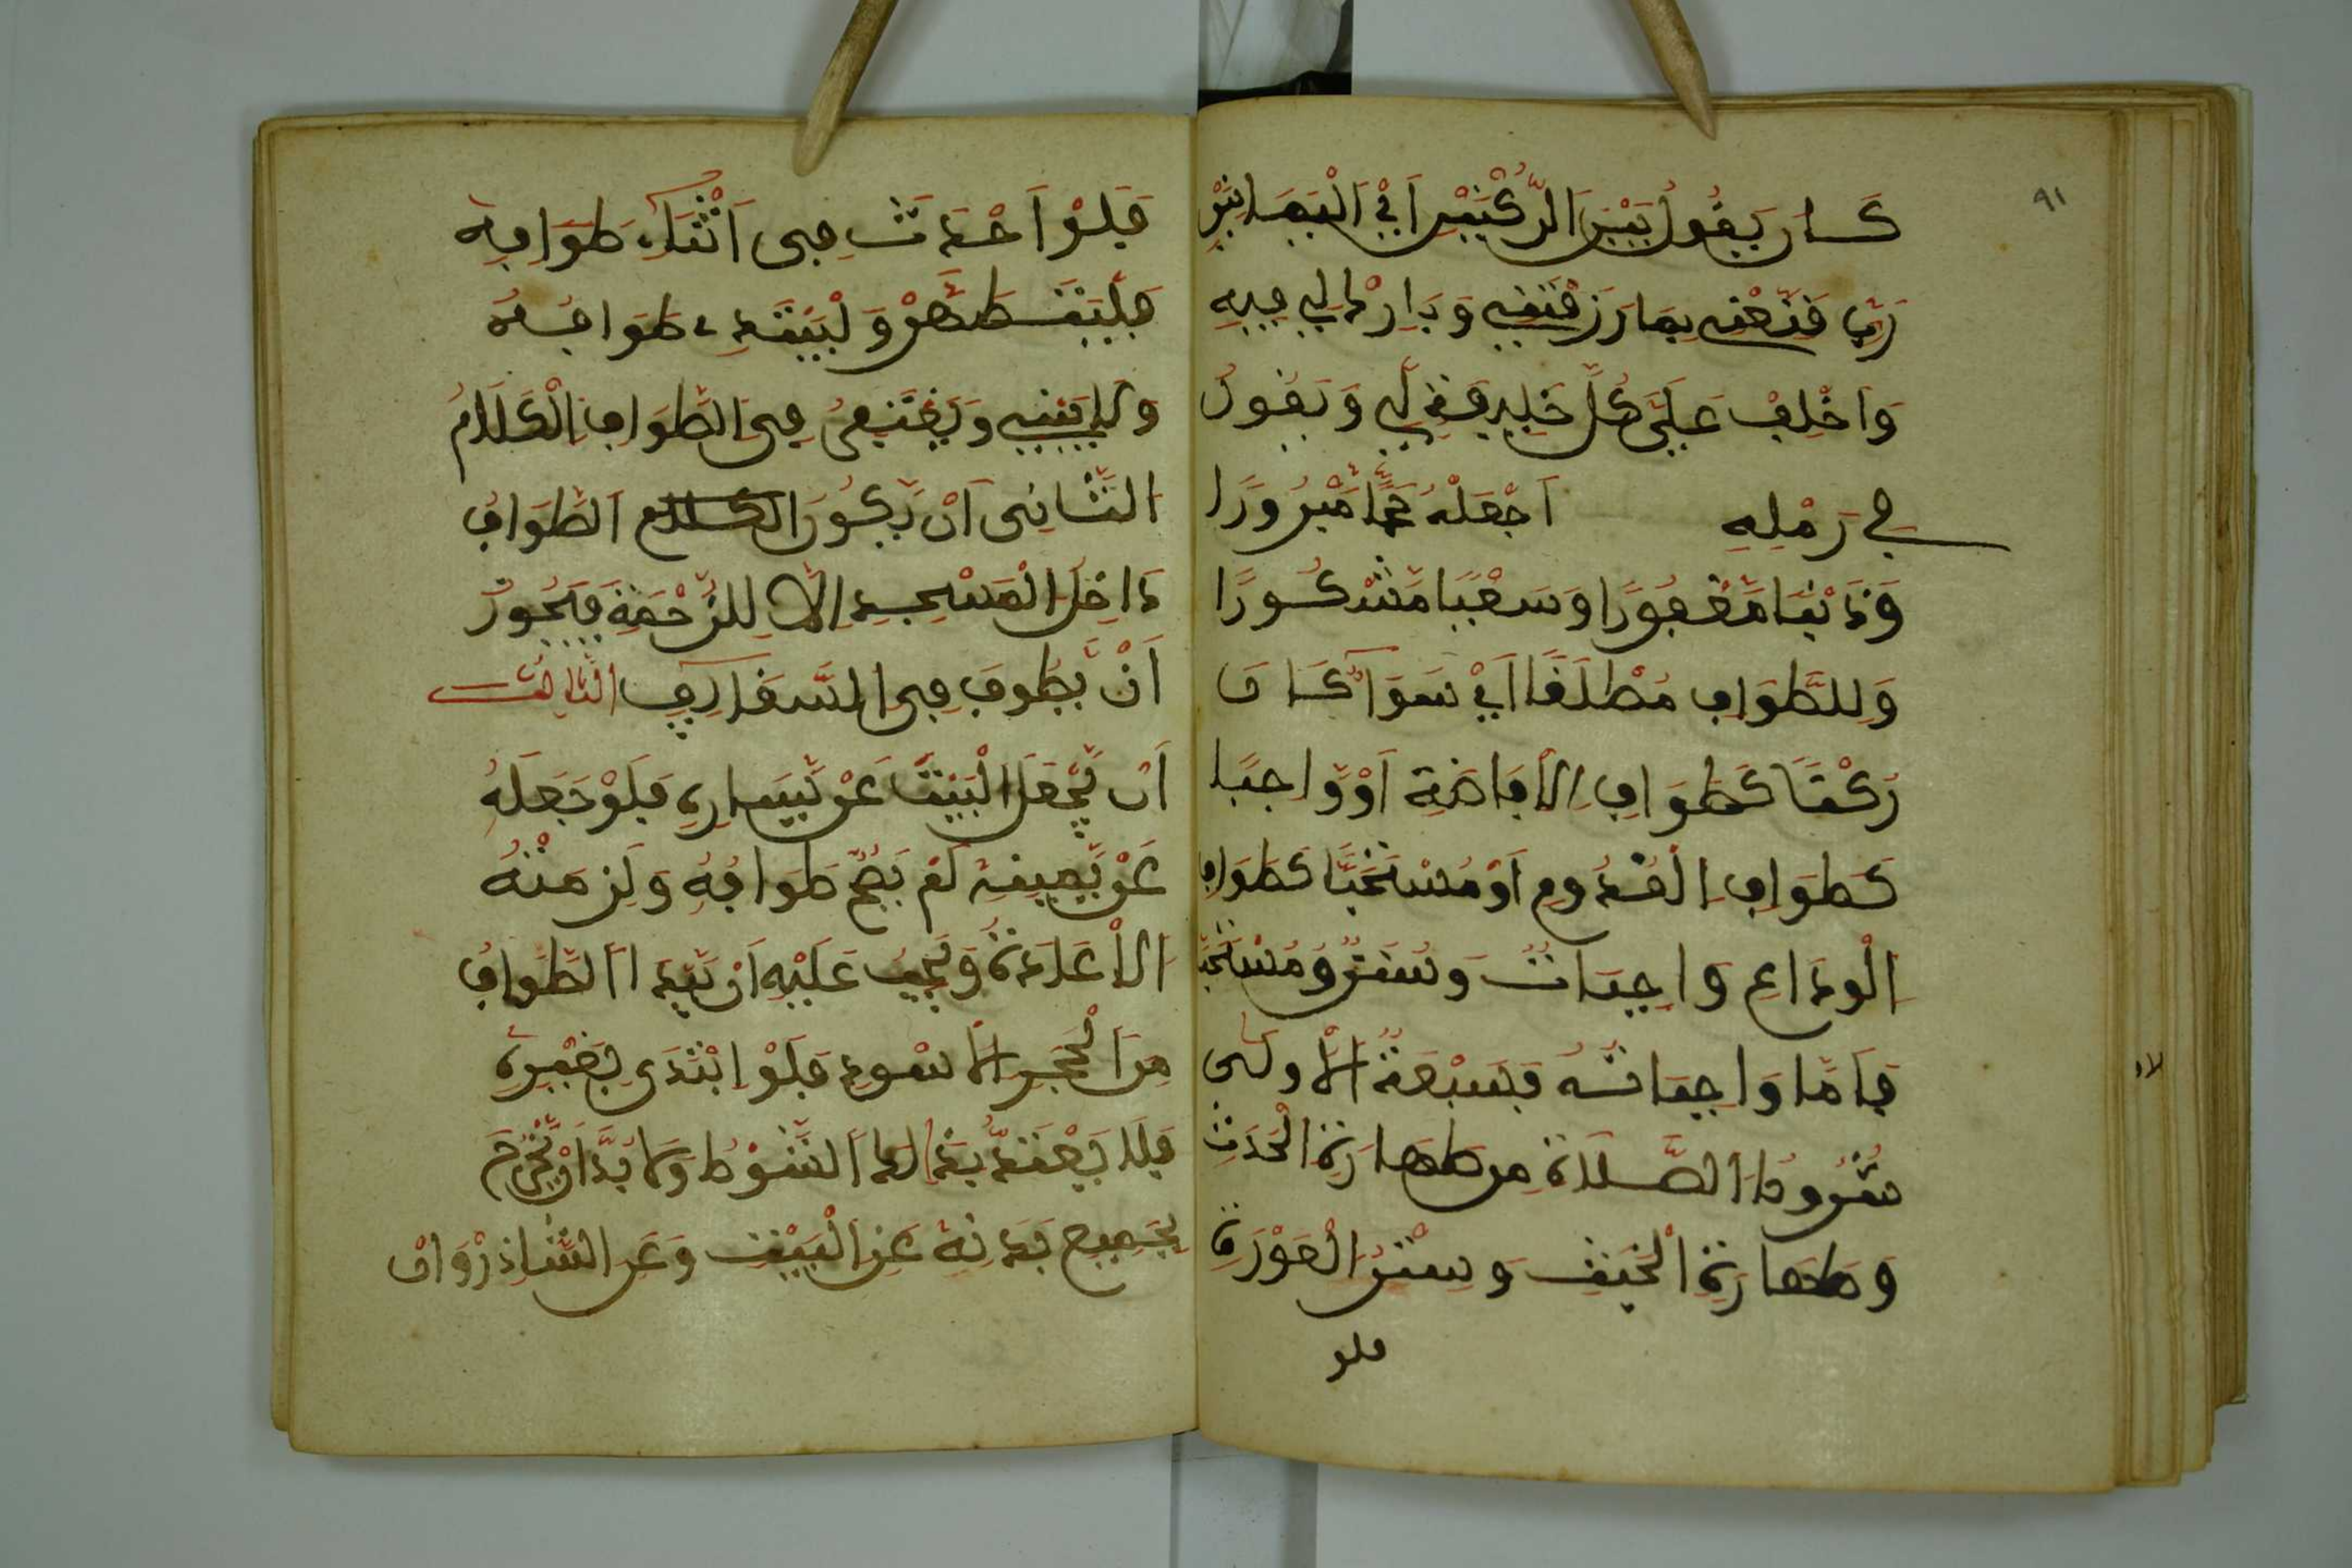 ٩١
كان يَقُولُ بَيْنَ الرُّكْنَيْنِ اَيْ اَلْيَمَانِيَيْنِ
رَبِّ قَنِّعْنِي بِمَا رَزَقْتَنِي وَبَارِكْ لِي فِيهِ
وَاخْلِفْ عَلَى كُلِّ
في رَمْلِهِ اَجْعَلْهُ حَجًّا مَبْرُورًا
وَذَنْبًا مَغْفُورًا وَسَعْيًا مَشْكُورًا
وَلِلطَّوَافِ مُطْلَقًا اَيْ سَوَآءٌ كَانَ
رُكْنًا كَطَوَافِ اِلْاِفَاضَةِ اَوْ وَاجِبًا
كَطَوَافِ اِلْقُدُومِ اَوْ مُسْتَحَبًّا كَطَوَافِ
اِلْوَدَاعِ وَاجِبَاتٌ وَسُنَنٌ وَمُسْتَحَبَّ
فَاَمَّا وَاجِبَاتُهُ فَسَبْعَةٌ اَلْاُولَى
شُرُوطُ الصَّلَاةِ مِن طَهَارَةِ الْحَدَثِ
وَطَهَارَةِ الْخَبَثِ وَسَتْرِ الْعَوْرَةِ
فلو
فَلَوْ اَحْدَثَ فِى اَثْنَآءِ طَوَافِهِ
فَلْيَتَطَهَّرْ وَلْيَبْتَدِءْ طَوَافَهُ
وَلَا يَبْنِي وَيُغْتَفَرُ فِى الطَّوَافِ اِلْكَلَامُ
الثَّانِى اَنْ يَكُونَ الطَّوَافُ
دَاخِلَ الْمَسْجِدِ اِلَّا لِلزَّحْمَةِ فَيَجُوزُ
اَنْ يَطُوفَ فِى السَّقَآئِفِ الثَّالِثُ
اَن يَّجْعَلَ الْبَيْتَ عَنْ يَّسَارِهِ فَلَوْ جَعَلَهُ
عَنْ يَّمِينِهِ لَمْ يَصِحَّ طَوَافُهُ وَلَزِمَتْهُ
الْاِعَادَةُ وَيَجِبُ عَلَيْهِ اَنْ يَّبْدَا الطَّوَافَ
مِنَ الْحَجَرِ الْاَسْوَدِ فَلَوْ ابْتَدَى بِغَيْرِهِ
فَلَا يَعْتَدُّ بِذَالِكَ الشَّوْطِ وَلَا بُدَّ اَنْ يَّخْرُجَ
بِجَمِيعِ بَدَنِهِ عَنِ الْبَيْتِ وَعَنِ الشَّاذِرْوَانِ